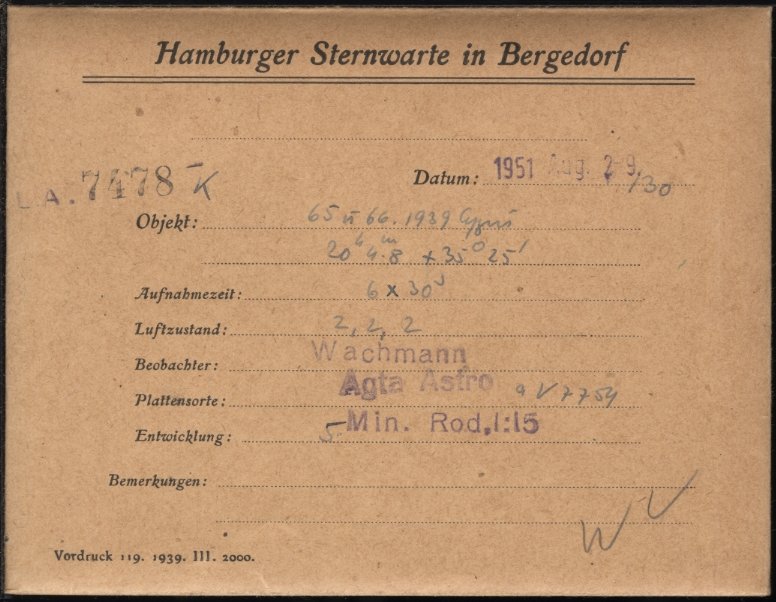 Hamburger Sternwarte in Bergedorf
L.A. 7478-K
Datum: 1951 Aug. 29./30
Objekt: 65 u 66. 1939 Cygni
20h 4m.8 +35° 25'
Aufnahmezeit: 6 x 30s
Luftzustand: 2, 2, 2
Beobachter: Wachmann
Plattensorte: Agfa Astro 7754
Entwicklung: 5 Min. Rod. 1:15
Bemerkungen:
Vordruck 119. 1939. III. 2000.